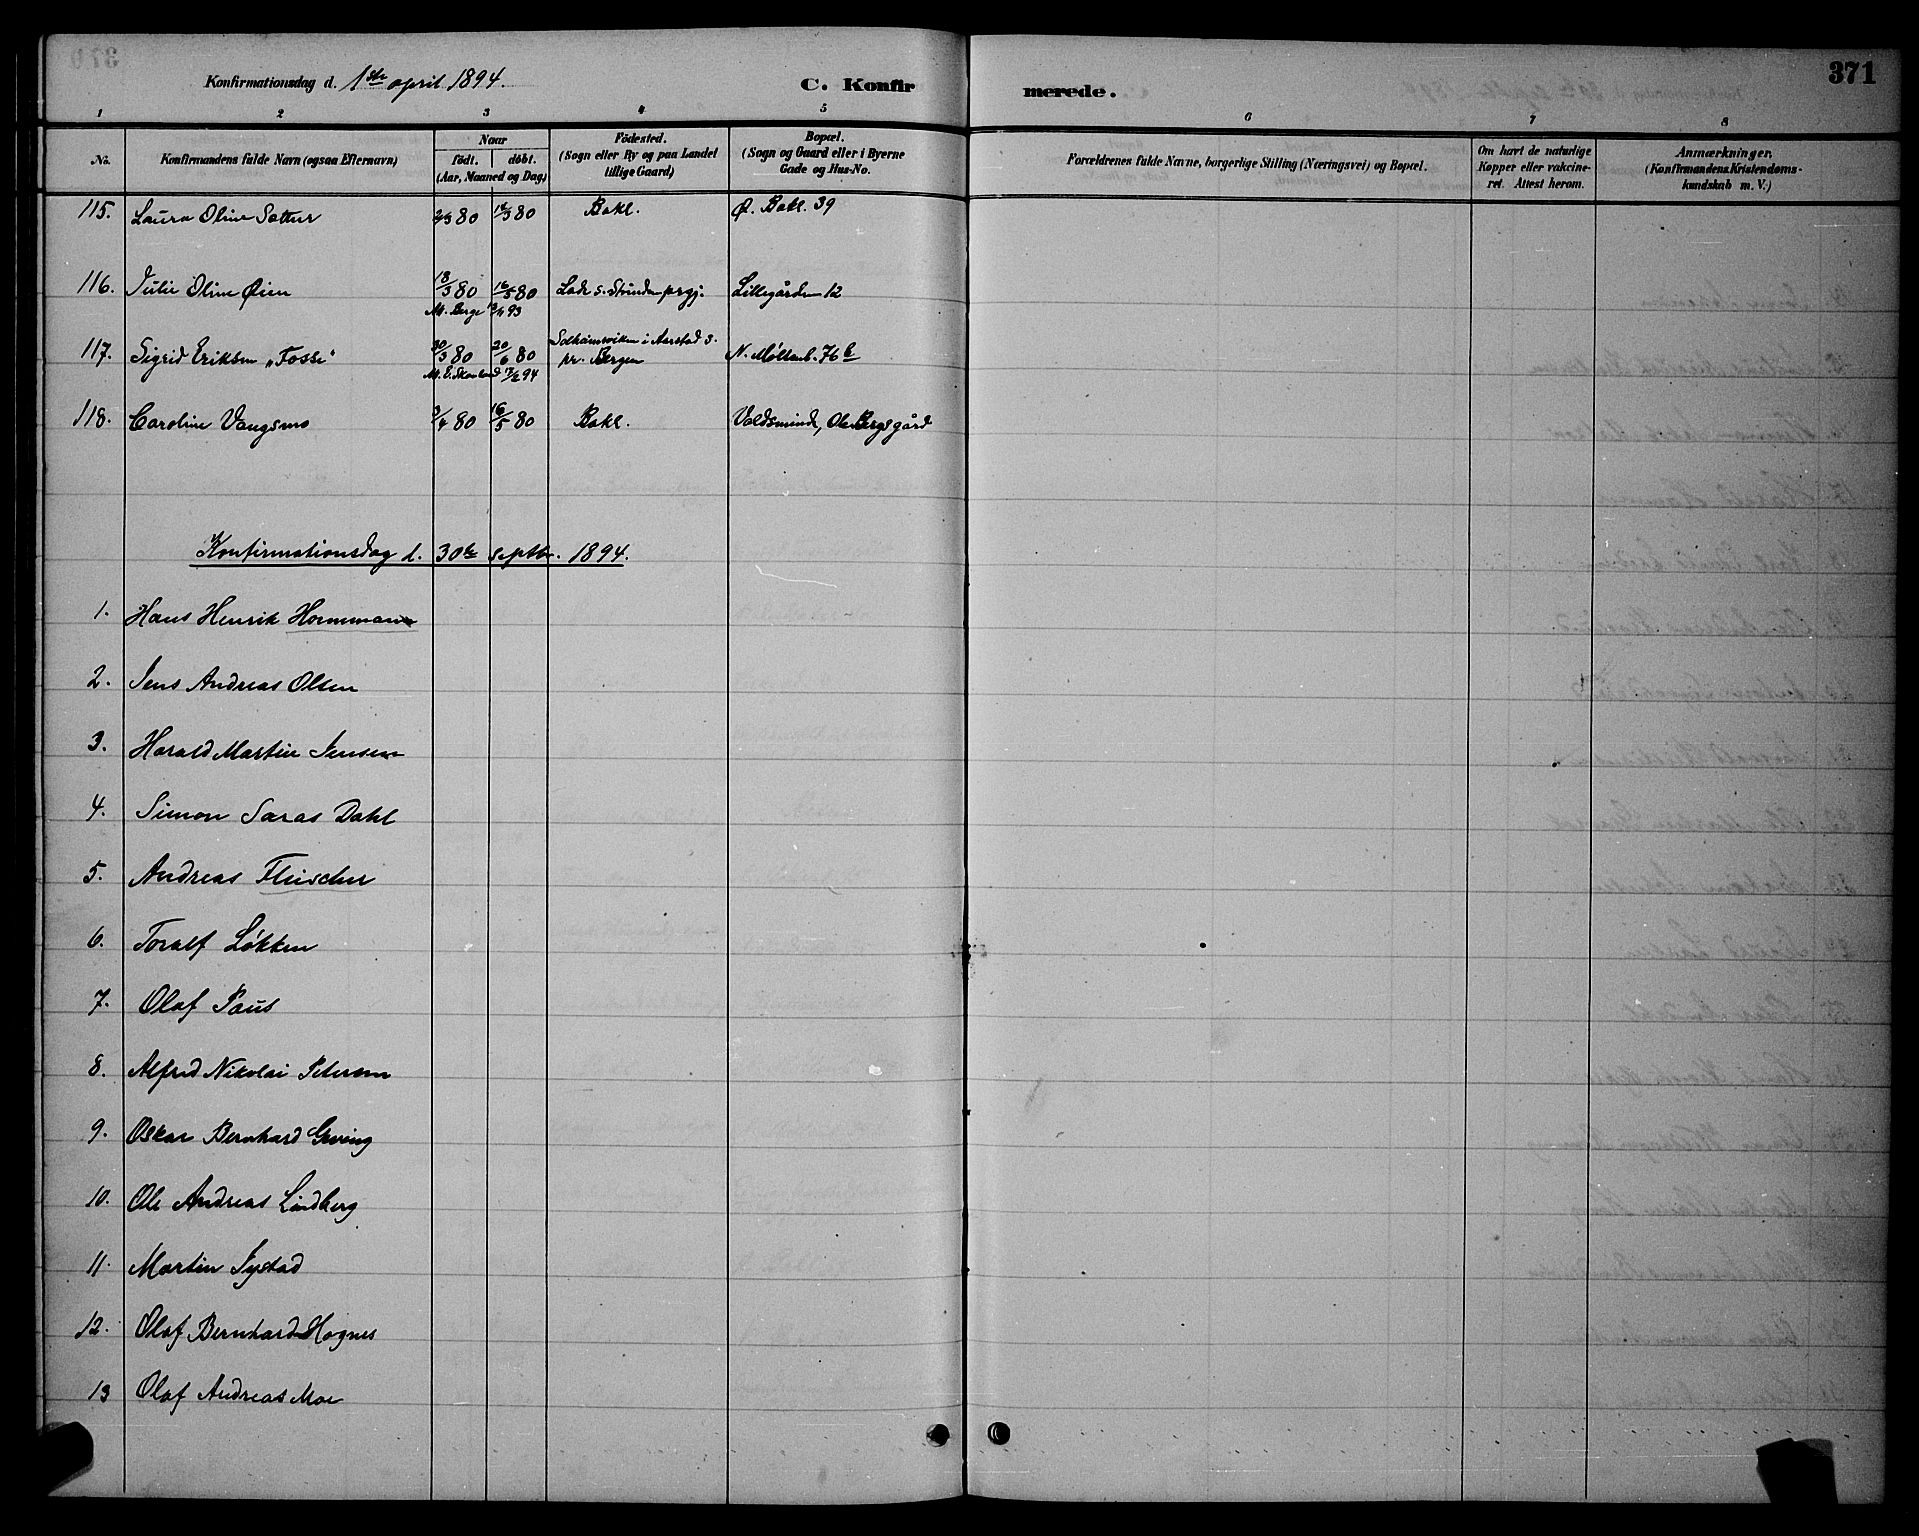 371
Konfirmationsdag d. 1ste april 1894.
C. Konfirmerede.
1 2 3 4 5 6 7 8
No.
Konfirmandens fulde Navn (ogsaa Efternavn)
Naar
født. døbt.
(Aar, Maaned og Dag)
Fødested.
(Sogn eller By og paa Landet
tillige Gaard)
Bopæl.
(Sogn og Gaard eller i Byerne
Gade og Hus-No.
Forældrenes fulde Navne, borgerlige Stilling (Næringsvei) og Bopæl.
Om havt de naturlige
Kopper eller vakcine-
ret. Attest herom.
Anmærkninger.
(Konfirmandens Kristendoms-
kundskab m. V.)
115. Laura Oline Sætter 80 80 Bakl. Ø. Bakl. 39
116. Julie Oline Øien 18/3 80 16/5 80 Lade s. Strinden prgj. Lillegården 12
M. Berge 93
117. Sigrid Eriksen „Fosse“ 30/3 80 20/6 80 Solheimsviken i Aarstad s. pr. Bergen N. Møllenb. 76b
94
118. Caroline Vangsmo 3/4 80 16/5 80 Bakl. Voldsminde, Ole Bergsgård
Konfirmationsdag d. 30te septbr. 1894.
1. Hans Henrik Hornemann
2. Jens Andreas Olsen
3. Harald Martin Jensen
4. Simon Saras Dahl
5. Andreas Fleischer
6. Toralf Løkken
7. Olaf Paus
8. Alfred Nikolai Petersen
9. Oskar Bernhard Grøing
10. Ole Andreas Lindberg
11. Martin Systad
12. Olaf Bernhard Hognes
13 Olaf Andreas Moe